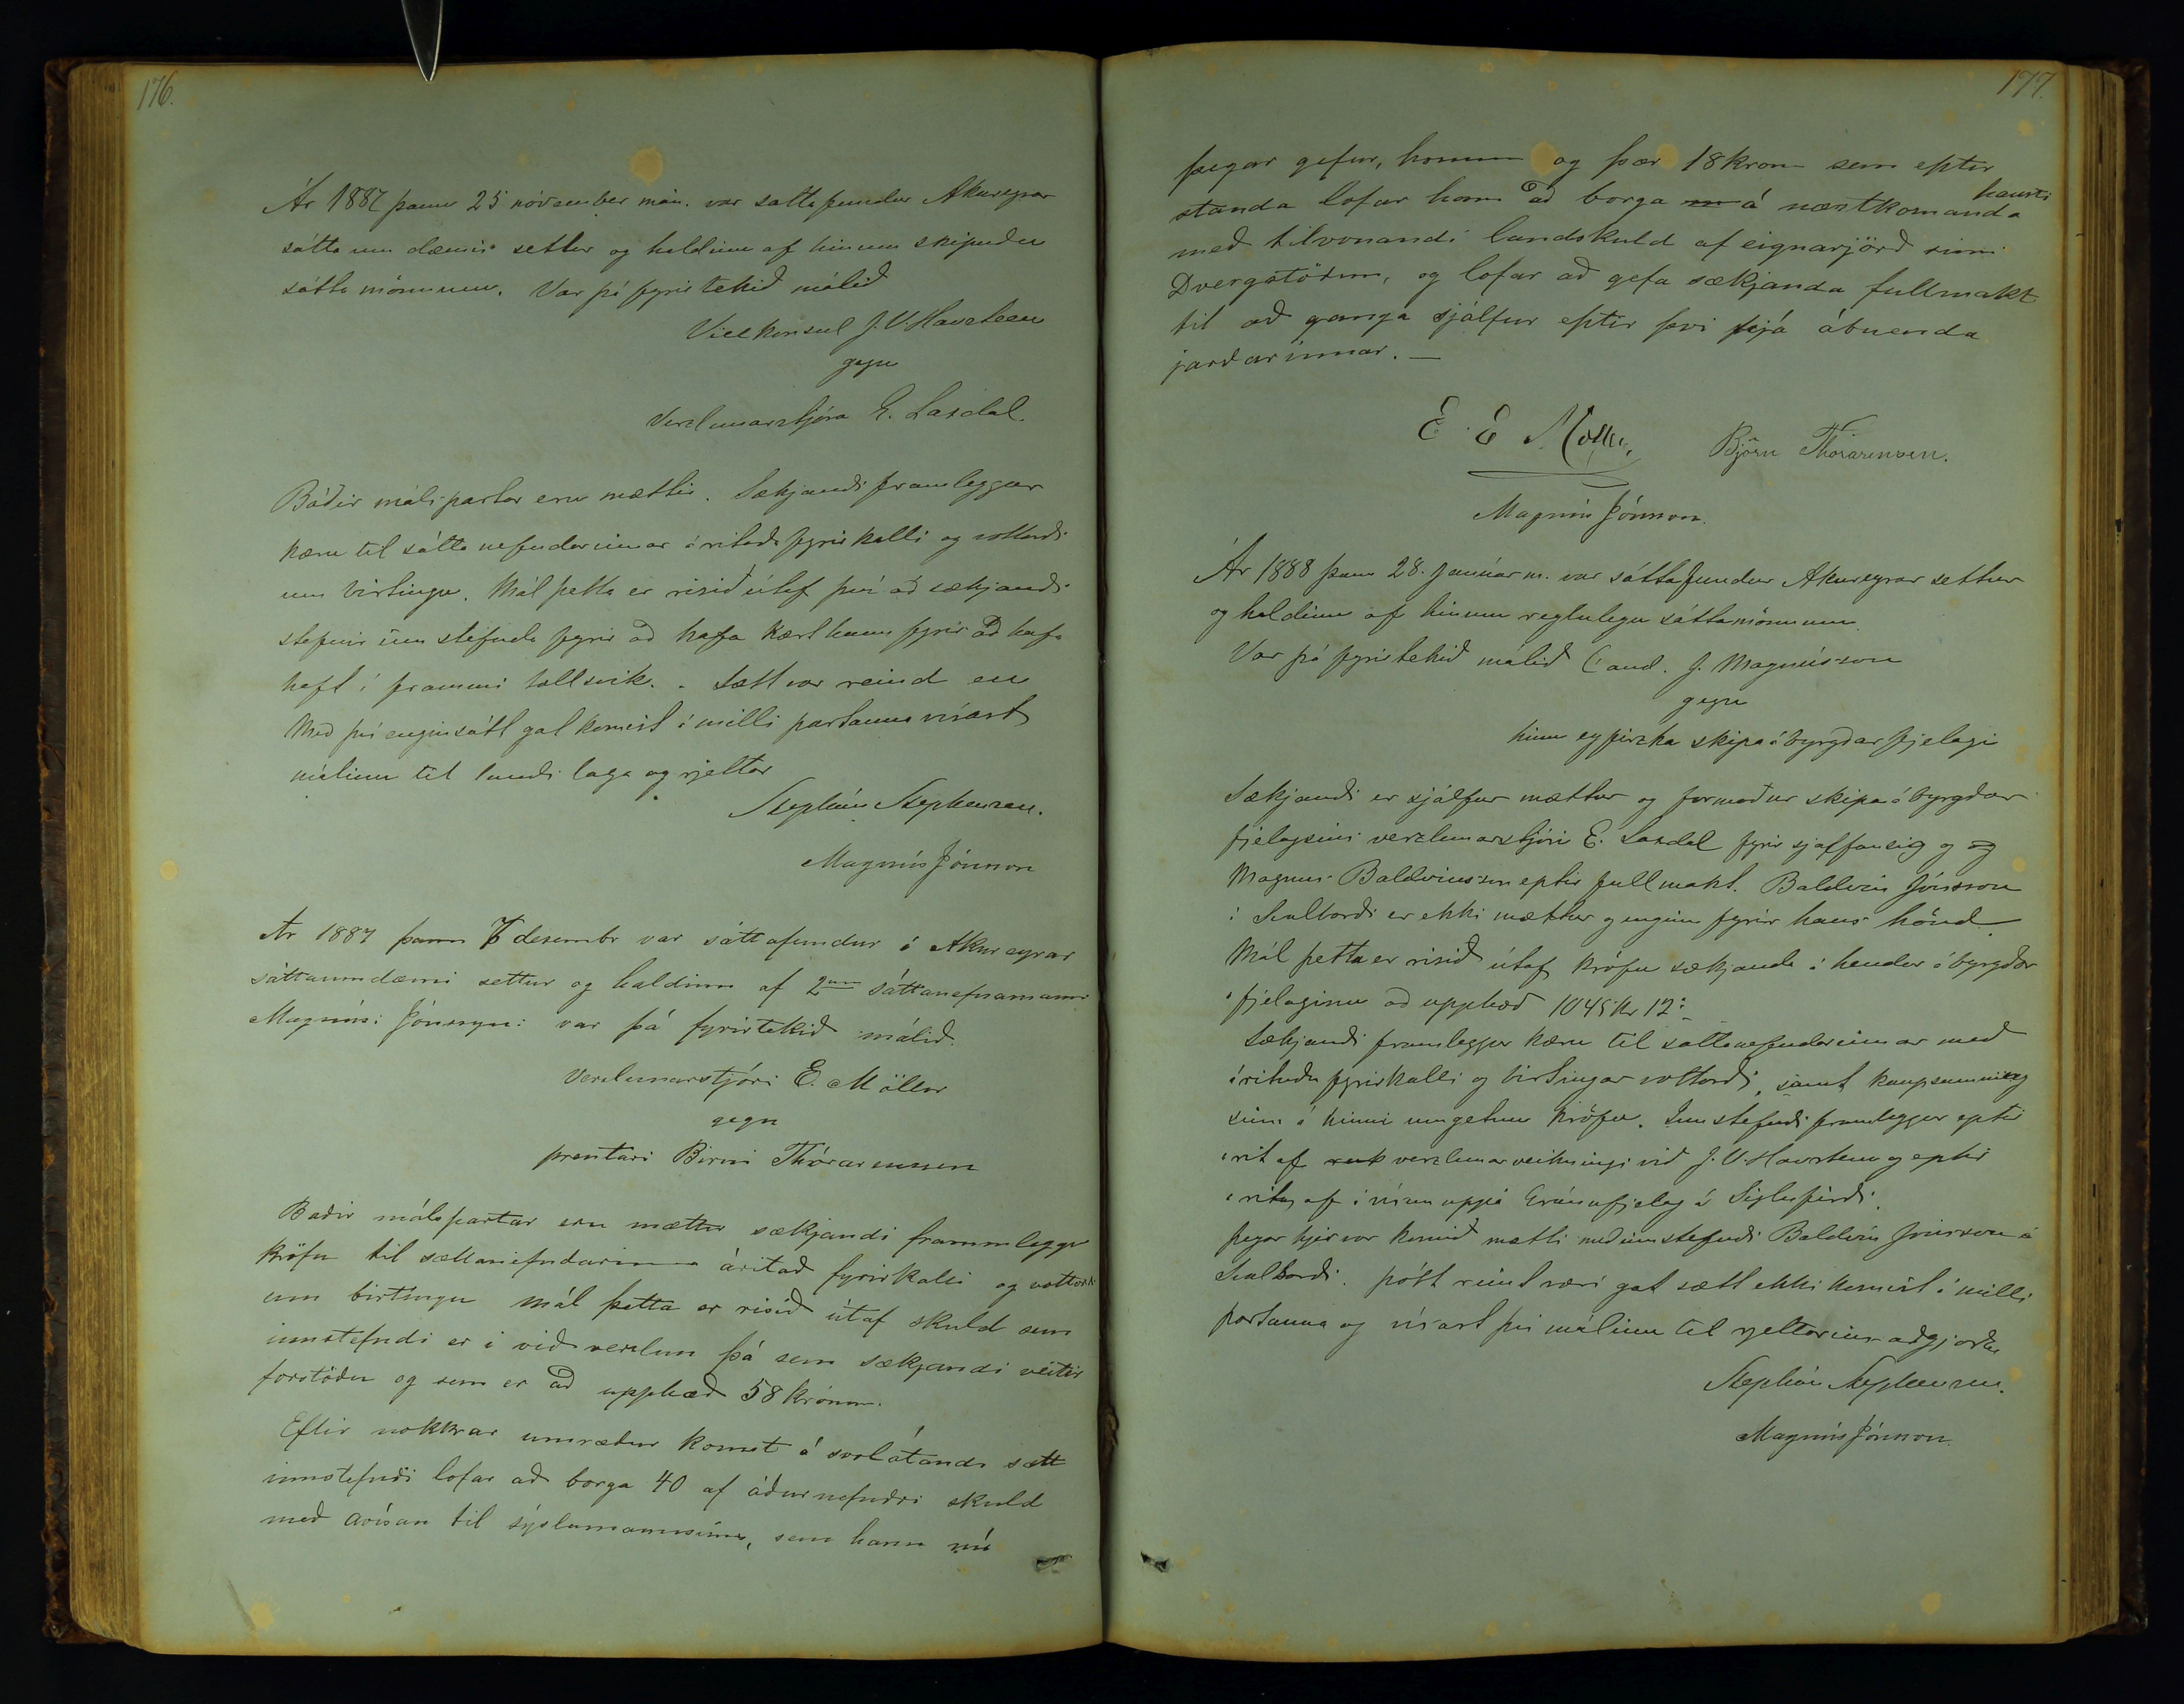 176.
Ár 1887 þann 25 nóvember mán. var sáttafundur Akureyrar
sátta um dæmis settur og haldinn af hinum skipuðu
sátta mönnum. Var þá fyrirtekið málið
Vicekonsul J. V. Havsteen
gegn
Verzlunarstjóra E. Laxdal.
Báðir málspartar eru mættir. Sækjandi framleggur
kæru til sáttanefndarinnar áritaða fyrirkalli og vottorði
um birtingu. Mál þetta er risið útaf því að sækjandi
stefnir inn stefnda fyrir að hafa kært hann fyrir að hafa
haft í frammi tollsvik. Sætt var reind en
Með því engin sátt gat komist í milli partanna vísast
málinu til lands laga og rjettar
Stephán Stephensen.
Magnús Jónsson
Ár 1887 þann 7 desembr var sáttafundur á Akureyrar
sáttaumdæmi settur og haldinn af 2um sáttanefnamanni
Magnúsi Jónssyni var þá fyrirtekið málið
Verzlunarstjóri E. Möller
gegn
prentari Birni Thórarensen
Báðir málspartar eru mættir sækjandi frammleggur
kröfu til sættanefndarinna áritað fyrirkalli og vottorði
um birtingu mál þetta er risið útaf skuld sem
innstefndi er í við verzlun þá sem sækjandi veitir
forstöðu og sem er að upphæð 58 krónur.
Eftir nokkrar umræður komst á svolátandi sætt
innstefndi lofar að borga 40 af áðurnefndri skuld
með ávísan til sýslumannsins, sem hann nú
177.
þegar gefur, honum og þær 18 krónur sem eptir
standa lofar hann að borga á næstkomanda hausti
með tilvonandi landskuld af eignarjörð sinni
Dvergstöðum, og lofar að gefa sækjanda fullmakt
til að ganga sjálfur eptir því hjá ábuenda
jarðarinnar. —
E. E. Möller, Björn Thórarensen.
Magnús Jónsson.
Ár 1888 þann 28. Janúar m. var sáttafundur Akureyrar settur
og haldinn af hinum reglulegu sáttamönnum.
Var þá fyrirtekið málið Cand. J. Magnússon
gegn
hinu eyfirzka skipaábyrgðarfjelagi
Sækjandi er sjálfur mættur og formaður skipaábyrgðar
fjelagsins verzlunarstjóri E. Laxdal fyrir sjálfan sig og og
Magnus Baldvinsson eptir fullmakt. Baldvin Jónsson
í Svalbarði er ekki mættur og enginn fyrir hans hönd.
Mál þetta er risið útaf kröfu sækjanda á hendur ábyrgðar
fjelaginu að upphæð 1045 kr 12
Sækjandi framleggur kæru til sáttanefndarinnar með
árituðu fyrirkalli og birtingar vottorði, samt kaupsamning
sinn á hinni umgetnu kröfu. Innstefndi framleggur eptir
rit af verzlunarreikningi við J. V. Havsteen og eptir
rit af ávísun uppá Gránufjelag á Siglufirði.
Þegar hjer var komið mætti meðinnstefndi Baldvin Jónsson á
Svalbarði. Þótt reint væri gat sætt ekki komist á milli
partanna og vísast því málinu til rjettarins aðgjörða
Stephán Stephensen.
Magnús Jónsson.